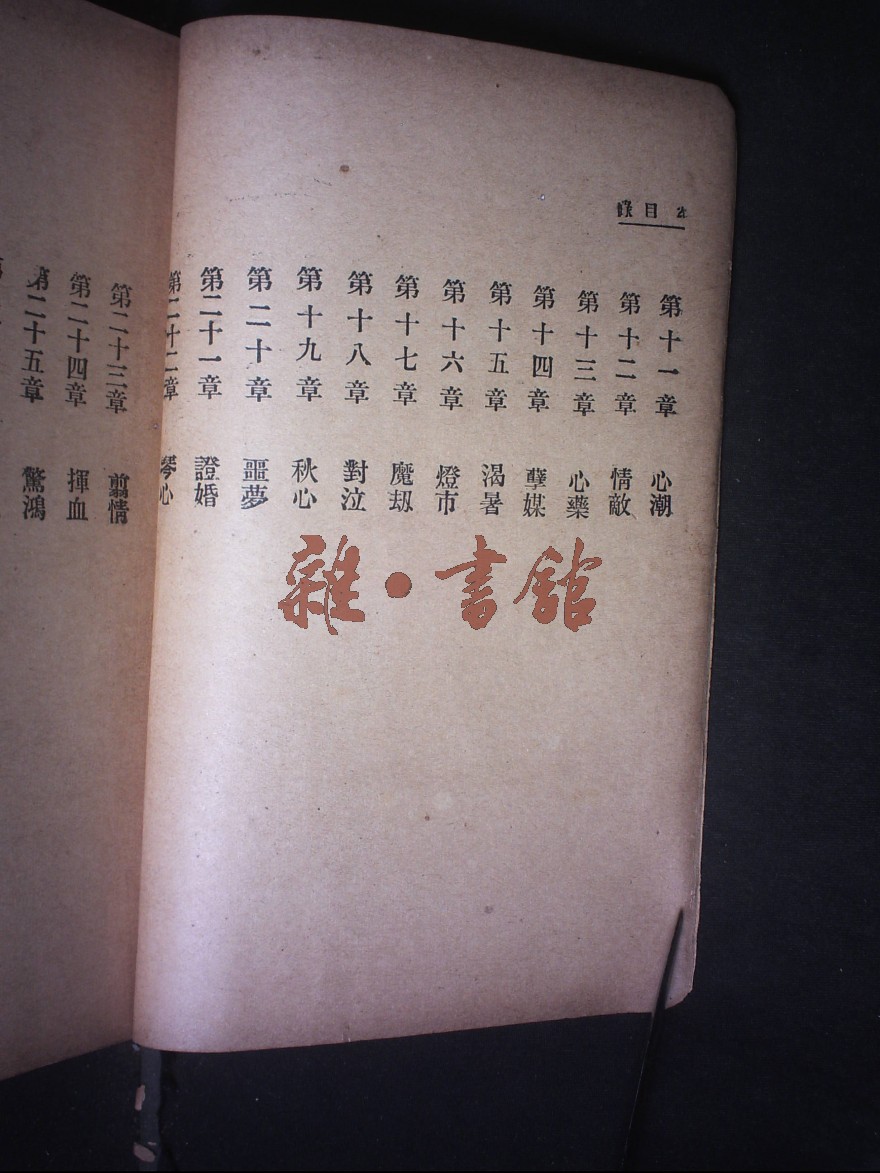 目錄 2
第十一章 心潮
第十二章 情敵
第十三章 心藥
第十四章 孽媒
第十五章 渴暑
第十六章 燈市
第十七章 魔劫
第十八章 對泣
第十九章 秋心
第二十章 噩夢
第二十一章 證婚
第二十二章 琴心
第二十三章 翦情
第二十四章 揮血
第二十五章 驚鴻
雜·書館